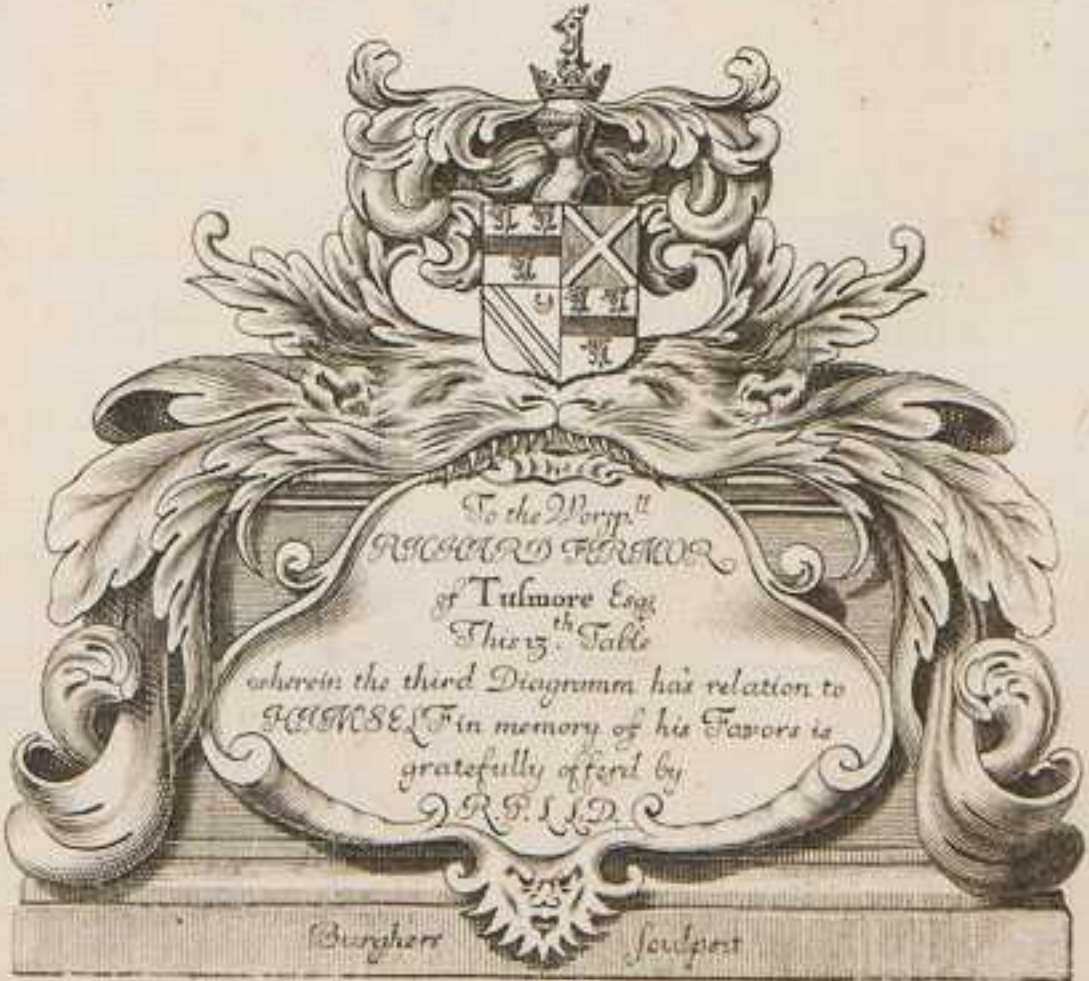 To the Worpll
RICHARD FERMOR
of Tusmore Esqr
This 13th. Table
wherein the third Diagramm has relation to
HIMSELF in memory of his Favors is
gratefully offerd by
R P. LLD.
Burghers sculpsit